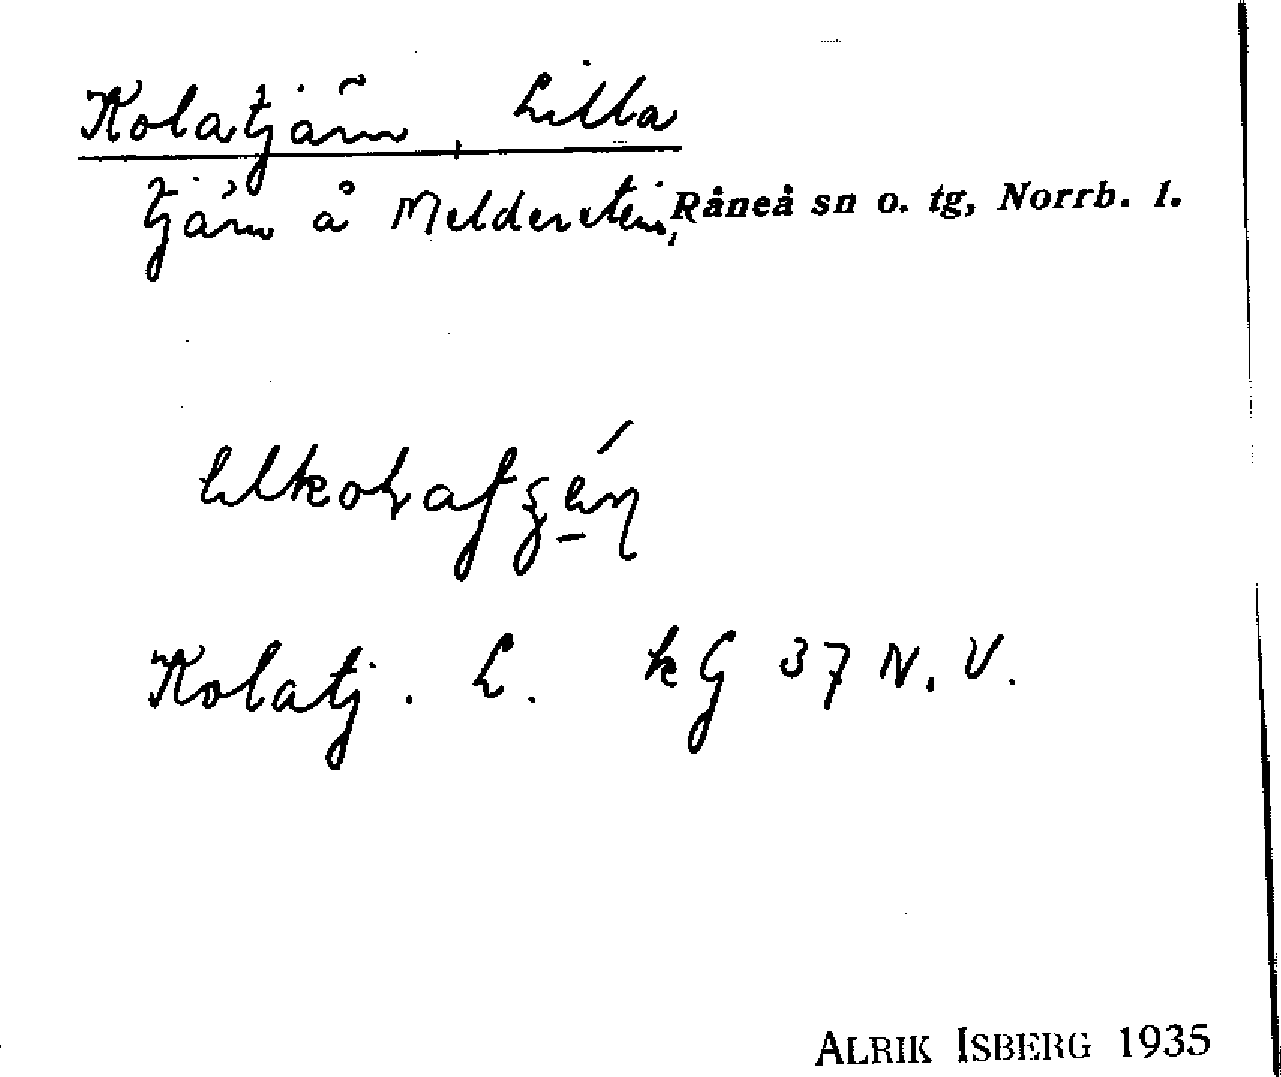 Kolatjärn, Lilla
tjärn å Melderstein, Råneå sn o. tg, Norrb. l.
Kolatj. L. kG 37 N.V.
ALRIK ISBERG 1935